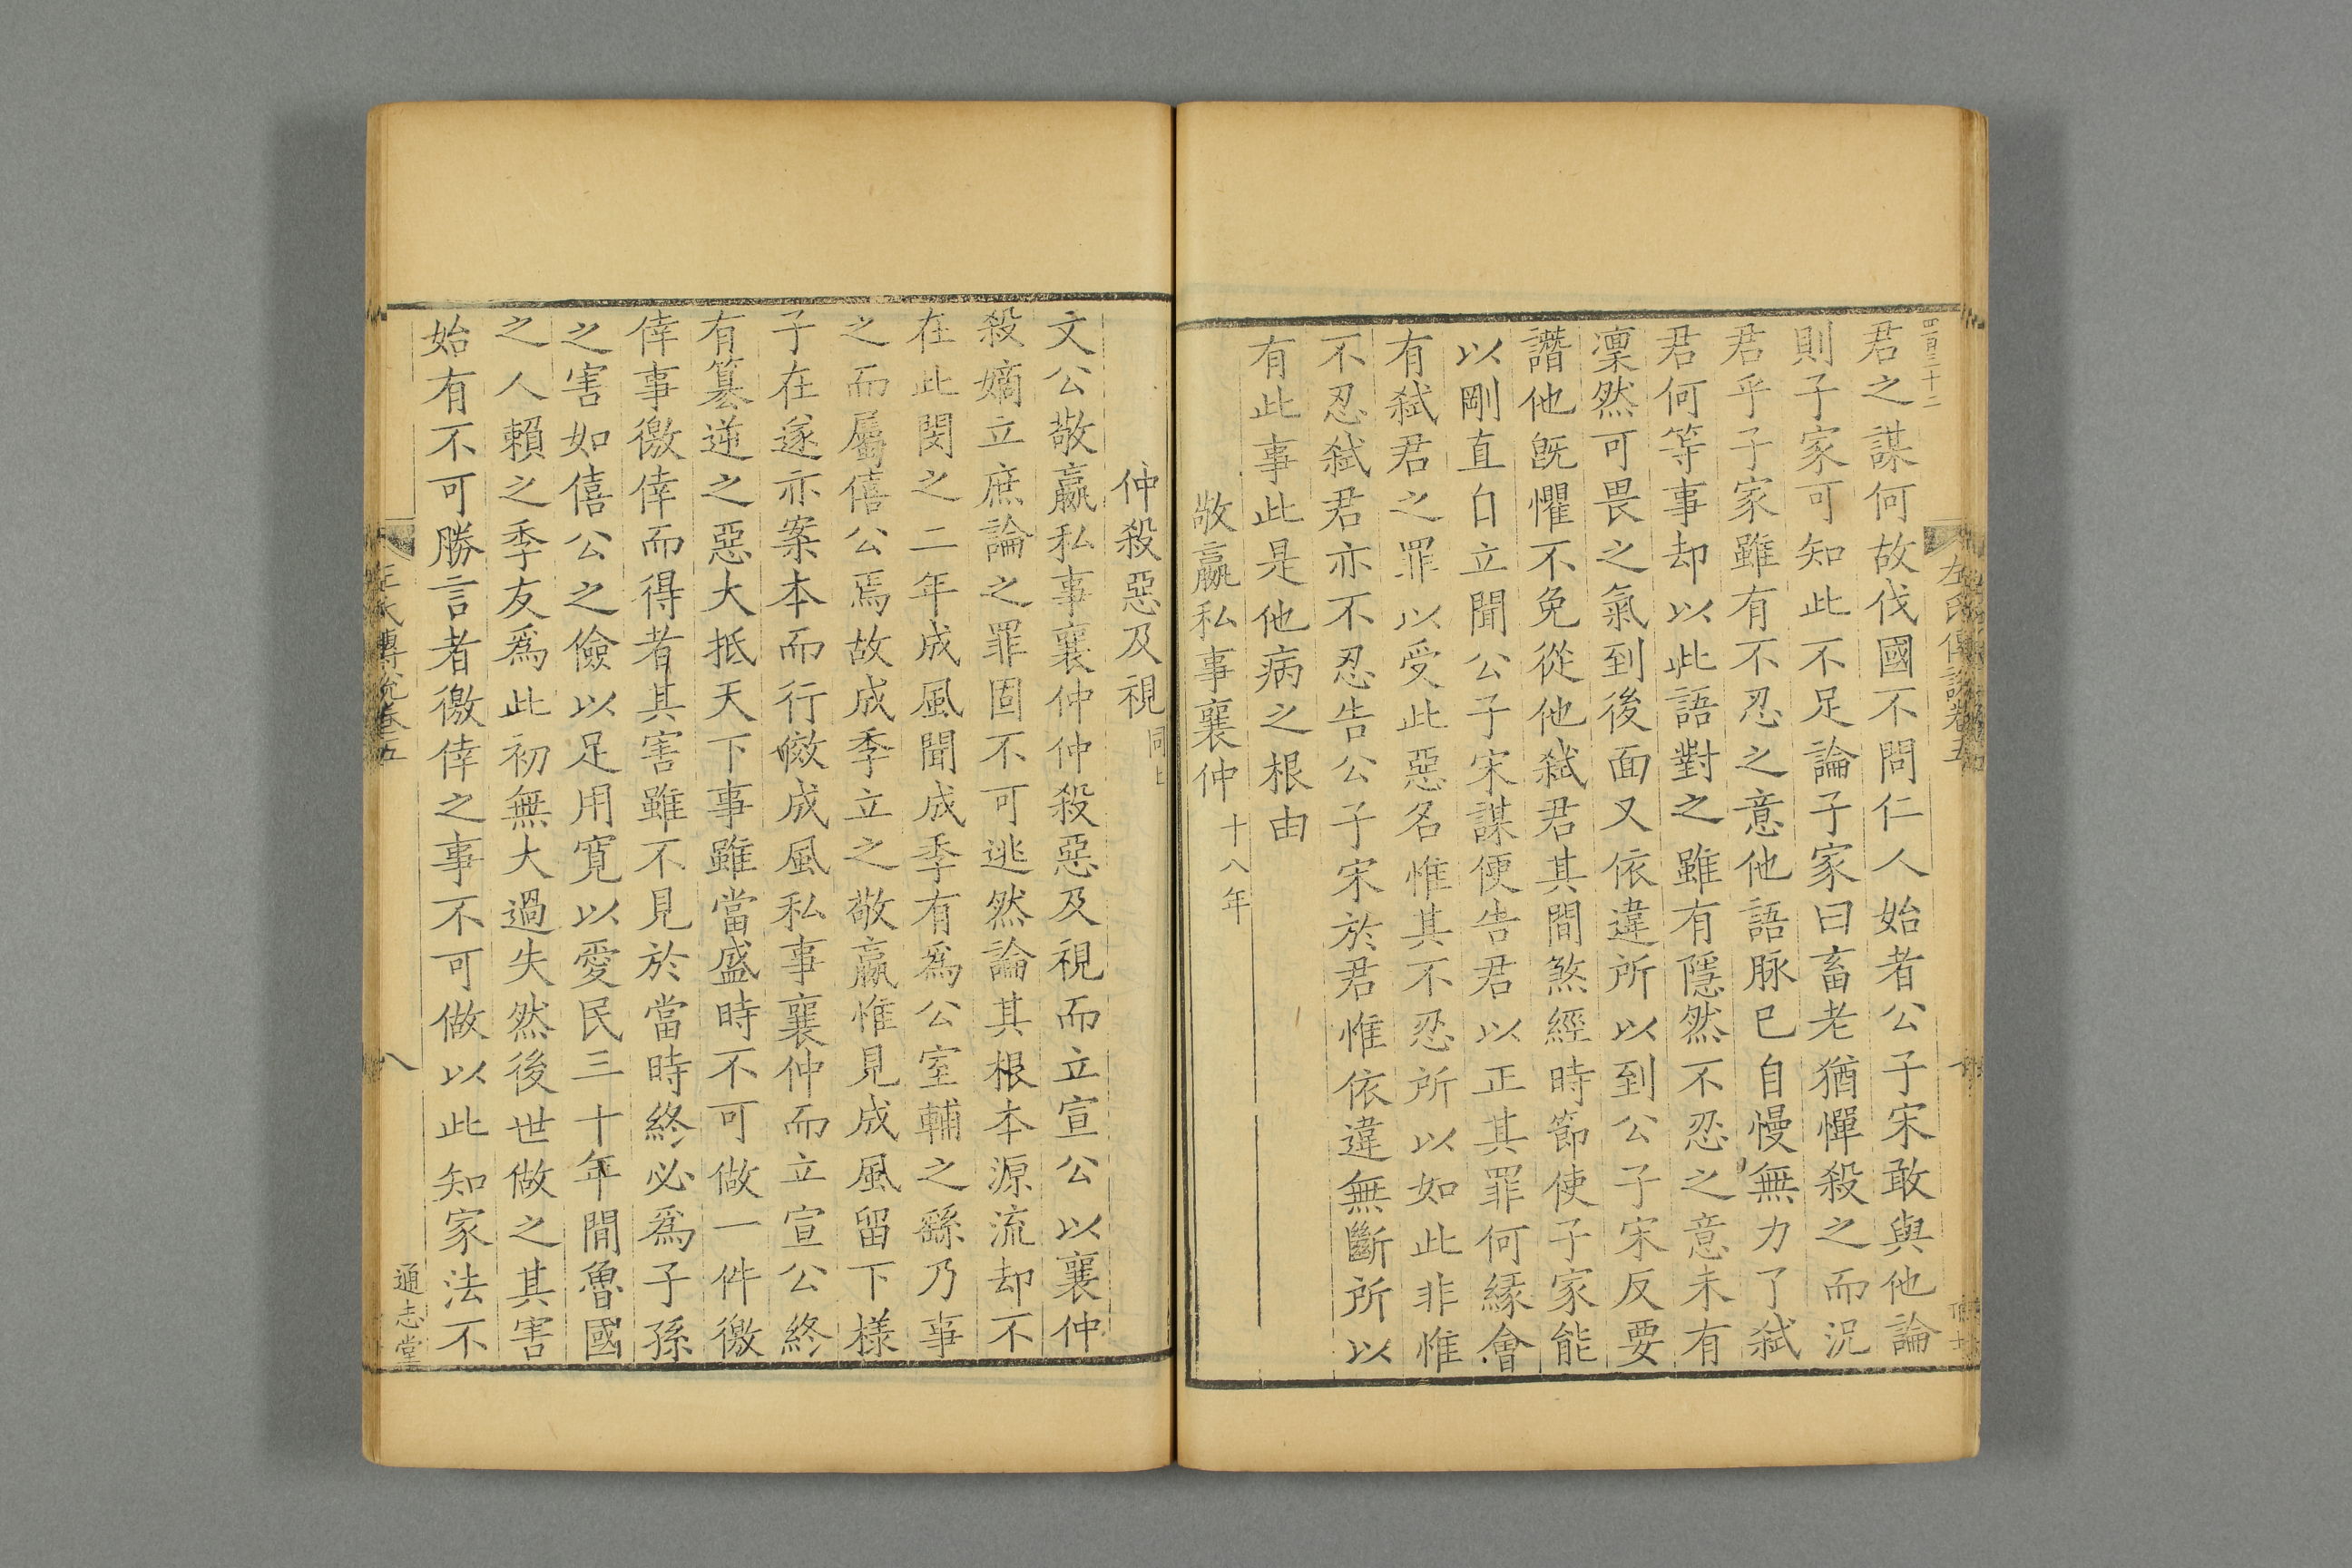 四百三十二
君之謀何故伐國不問仁人始者公子宋敢與他論
則子家可知此不足論子家曰畜老猶憚殺之而況
君乎子家雖有不忍之意他語脉已自慢無力了弑
君何等事却以此語對之雖有隱然不忍之意未有
凜然可畏之氣到後面又依違所以到公子宋反要
譖他旣懼不免從他弑君其間煞經時節使子家能
以剛直自立聞公子宋謀便告君以正其罪何緣會
有弑君之罪以受此惡名惟其不忍所以如此非惟
不忍弑君亦不忍告公子宋於君惟依違無斷所以
有此事此是他病之根由
敬嬴私事襄仲 十八年
仲殺惡及視 同上
文公敬嬴私事襄仲仲殺惡及視而立宣公以襄仲
殺嫡立庶論之罪固不可逃然論其根本源流却不
在此閔之二年成風聞成季有爲公室輔之繇乃事
之而屬僖公焉故成季立之敬嬴惟見成風留下樣
子在遂亦案本而行傚成風私事襄仲而立宣公終
有篡逆之惡大抵天下事雖當盛時不可做一件徼
倖事徼倖而得者其害雖不見於當時終必爲子孫
之害如僖公之儉以足用寬以愛民三十年間魯國
之人賴之季友爲此初無大過失然後世做之其害
始有不可勝言者徼倖之事不可做以此知家法不
左氏傳說卷五
八
通志堂